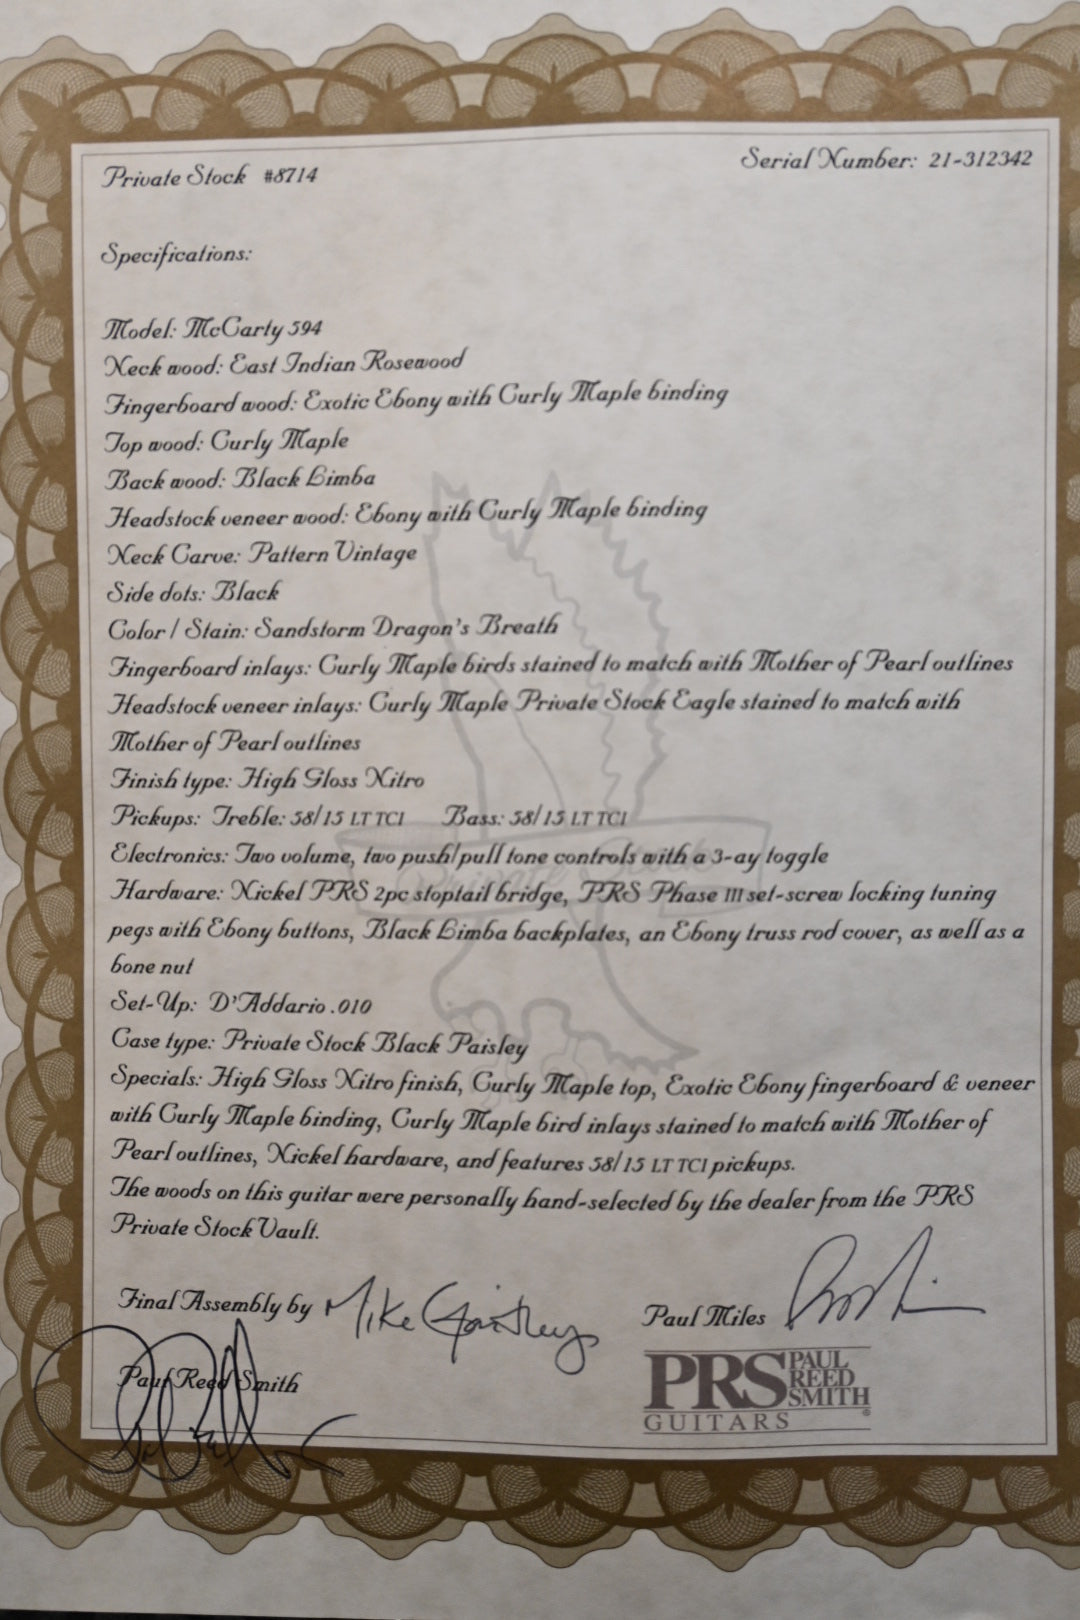 Private Stock #8714
Serial Number: 21-312342
Specifications:
Model: McCarty 594
Neck wood: East Indian Rosewood
Fingerboard wood: Exotic Ebony with Curly Maple binding
Top wood: Curly Maple
Back wood: Black Limba
Headstock veneer wood: Ebony with Curly Maple binding
Neck Carve: Pattern Vintage
Side dots: Black
Color / Stain: Sandstorm Dragon's Breath
Fingerboard inlays: Curly Maple birds stained to match with Mother of Pearl outlines
Headstock veneer inlays: Curly Maple Private Stock Eagle stained to match with
Mother of Pearl outlines
Finish type: High Gloss Nitro
Pickups: Treble: 58/15 LT TCI Bass: 58/15 LT TCI
Electronics: Two volume, two push/pull tone controls with a 3-ay toggle
Hardware: Nickel PRS 2pc stoptail bridge, PRS Phase III set-screw locking tuning
pegs with Ebony buttons, Black Limba backplates, an Ebony truss rod cover, as well as a
bone nut
Set-Up: D'Addario .010
Case type: Private Stock Black Paisley
Specials: High Gloss Nitro finish, Curly Maple top, Exotic Ebony fingerboard & veneer
with Curly Maple binding, Curly Maple bird inlays stained to match with Mother of
Pearl outlines, Nickel hardware, and features 58/15 LT TCI pickups.
The woods on this guitar were personally hand-selected by the dealer from the PRS
Private Stock Vault.
Final Assembly by Mike
Paul Miles
Paul Reed Smith
PRS PAUL REED SMITH
GUITARS
Private Stock